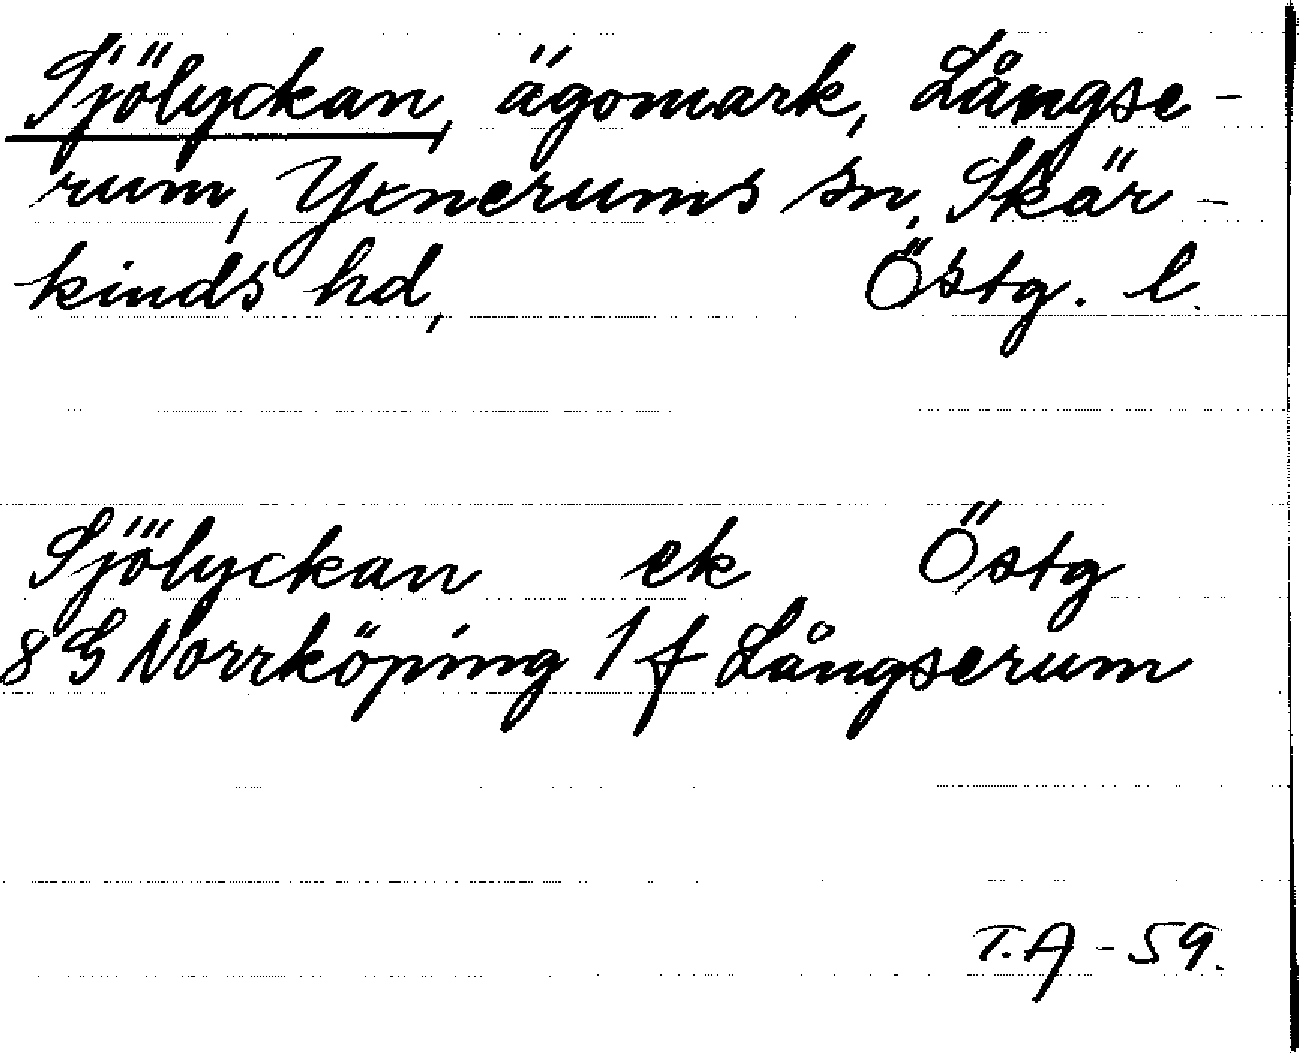 Sjölyckan, ägomark, Långse-
rum, Yxnerums sn, Skär-
kinds hd, Östg. l.
Sjölyckan ek Östg
8 G Norrköping 1 f Långserum
T.A - 59.